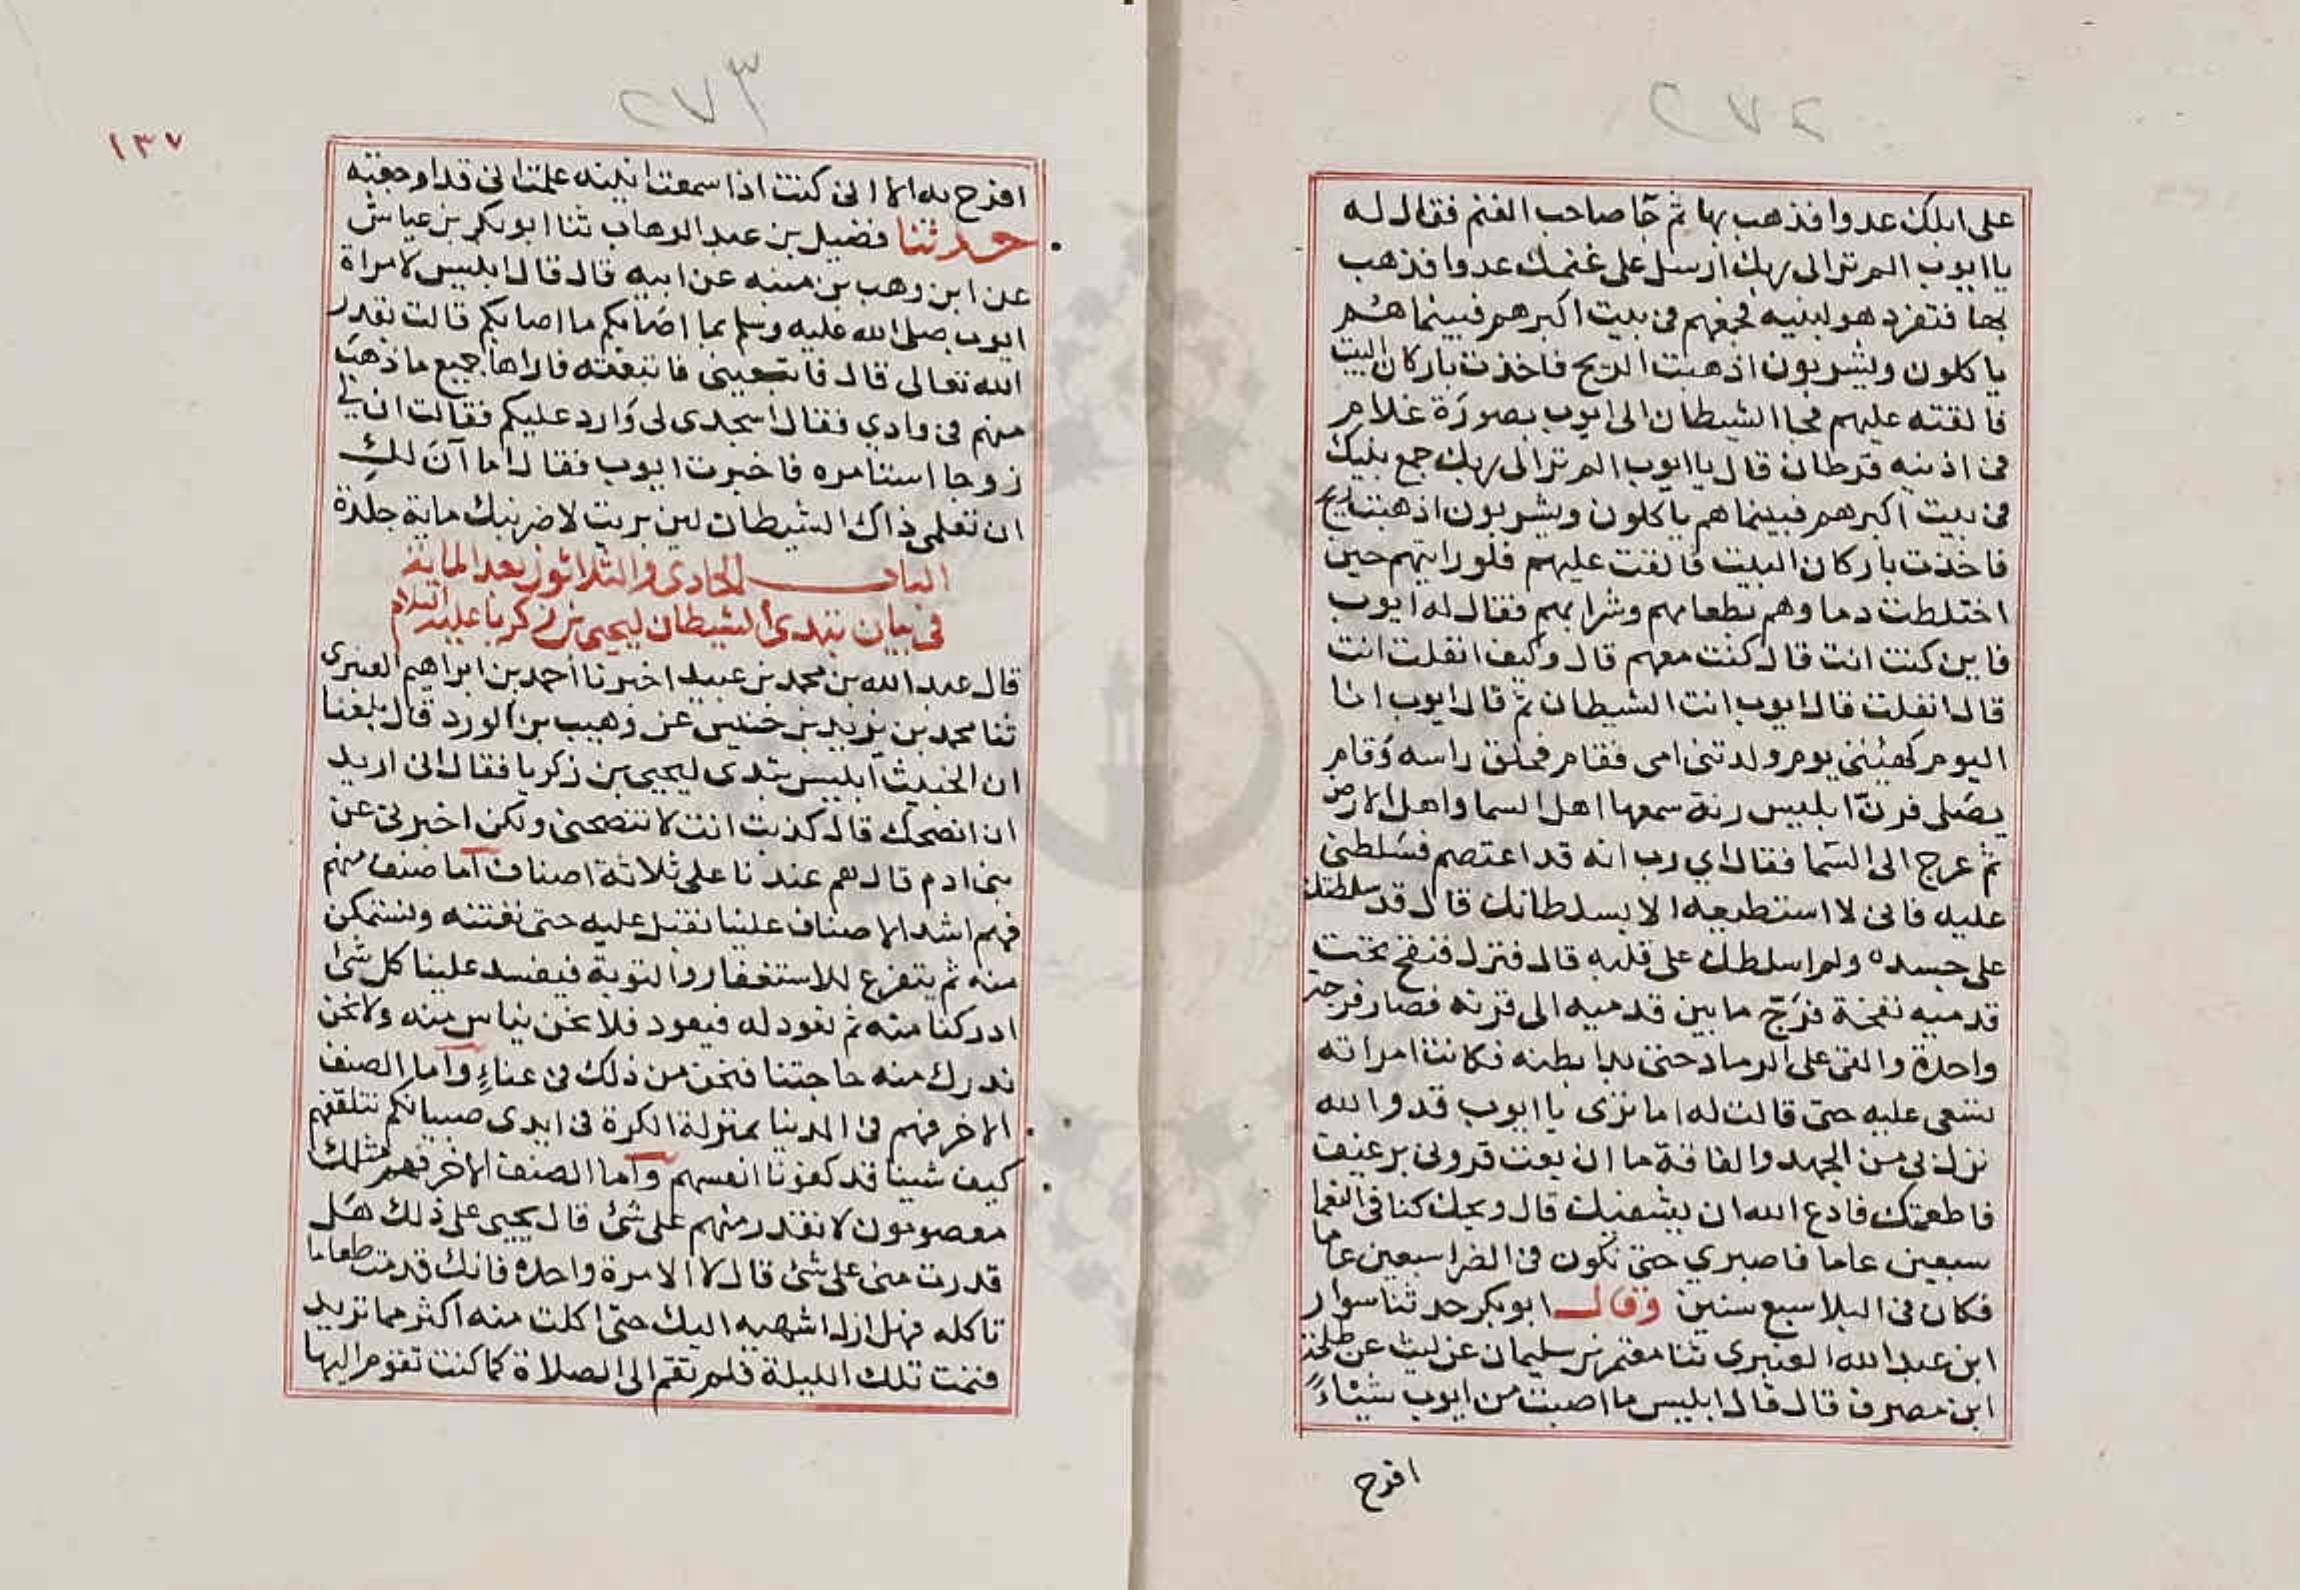 ٢٧٢
على ابلك عدوا فذهب بها ثم جا صاحب الغنم فقال له
يا ايوب الم تر الى ربك ارسل على غنمك عدوا فذهب
بها فتفرد هو لبنيه فجمعهم فى بيت اكبرهم فبينما هم
ياكلون ويشربون اذ هبت الريح فاخذت باركان البيت
فالقته عليهم فجا الشيطان الى ايوب بصورة غلام
فى اذنيه قرطان قال يا ايوب الم تر الى ربك جمع بنيك
فى بيت اكبرهم فبينما هم ياكلون ويشربون اذ هبت ريح
فاخذت باركان البيت فالقت عليهم فلو رايتهم حين
اختلطت دماوهم بطعامهم وشرابهم فقال له ايوب
فاين كنت انت قال كنت معهم قال وكيف انفلت انت
قال انفلت قال ايوب انت الشيطان ثم قال ايوب انا
اليوم كهيئتى يوم ولدتنى امى فقام فحلق راسه وقام
يصلى فرنّ ابليس رنة سمعها اهل السما واهل الارض
ثم عرج الى السما فقال اي رب انه قد اعتصم فسلطنى
عليه فانى لا استطيعه الا بسلطانك قال قد سلطتك
على جسده ولم اسلطك على قلبه قال فنزل فنفخ تحت
قدميه نفخة فرّج ما بين قدميه الى قرنه فصار قرحة
واحدة والقى على الرماد حتى بدا بطنه فكانت امراته
تسعى عليه حتى قالت له اما ترى يا ايوب قد والله
نزل بى من الجهد والفاقة ما ان بعت قرونى برغيف
فاطعمتك فادع الله ان يشفيك قال ويحك كنا فى النعما
سبعين عاما فاصبري حتى نكون فى الضرا سبعين عاما
فكان فى البلا سبع سنين وقال ابو بكر حدثنا سوار
ابن عبد الله العنبرى ثنا معتمر بن سليمان عن ليث عن طلحة
ابن مصرف قال قال ابليس ما اصبت من ايوب شيئاً
افرح
٢٧٣
١٣٧
افرح به الا انى كنت اذا سمعت انينه علمت انى قد اوجعته
حدثنا فضيل بن عبد الوهاب ثنا ابو بكر بن عياش
عن ابن وهب بن منبه عن ابيه قال قال ابليس لامراة
ايوب صلى الله عليه وسلم بما اصابكم ما اصابكم قالت بقدر
الله تعالى قال فاتبعينى فاتبعته فاراها جميع ما ذهب
منهم فى وادي فقال اسجدى لى وارد عليكم فقالت ان لي
زوجا استامره فاخبرت ايوب فقال اما آن لكِ
ان تعلمى ذاك الشيطان لين بريت لاضربنك ماية جلدة
الباب الحادى والثلاثون بعد الماية
فى بيان تبدى الشيطان ليحيى بن زكريا عليه السلام
قال عبد الله بن محمد بن عبيد اخبرنا احمد بن ابراهيم العبرى
ثنا محمد بن يزيد بن خنيس عن وهيب بن الورد قال بلغنا
ان الخبيث ابليس تبدى ليحيى بن زكريا فقال انى اريد
ان انصحك قال كذبت انت لا تنصحنى ولكن اخبرنى عن
بنى ادم قال هم عندنا على ثلاثة اصناف اما صنف منهم
فهم اشد الاصناف علينا نقبل عليه حتى نفتنه ونستمكن
منه ثم يتفرغ للاستغفار والتوبة فيفسد علينا كل شى
ادركنا منه ثم نعود له فيعود فلا نحن نياس منه ولا نحن
ندرك منه حاجتنا فنحن من ذلك فى عناءٍ واما الصنف
الاخر فهم فى الدنيا بمنزلة الكرة فى ايدى صبيانكم نتلقفهم
كيف شينا قد كفونا انفسهم واما الصنف الاخر فهم مثلك
معصومون لا نقدر منهم على شئ قال يحيى على ذلك هل
قدرت منى على شئ قال لا الا مرة واحدة فانك قدمت طعاما
تاكله فلم ازل اشهيه اليك حتى اكلت منه اكثر مما تريد
فنمت تلك الليلة فلم تقم الى الصلاة كما كنت تقوم اليها